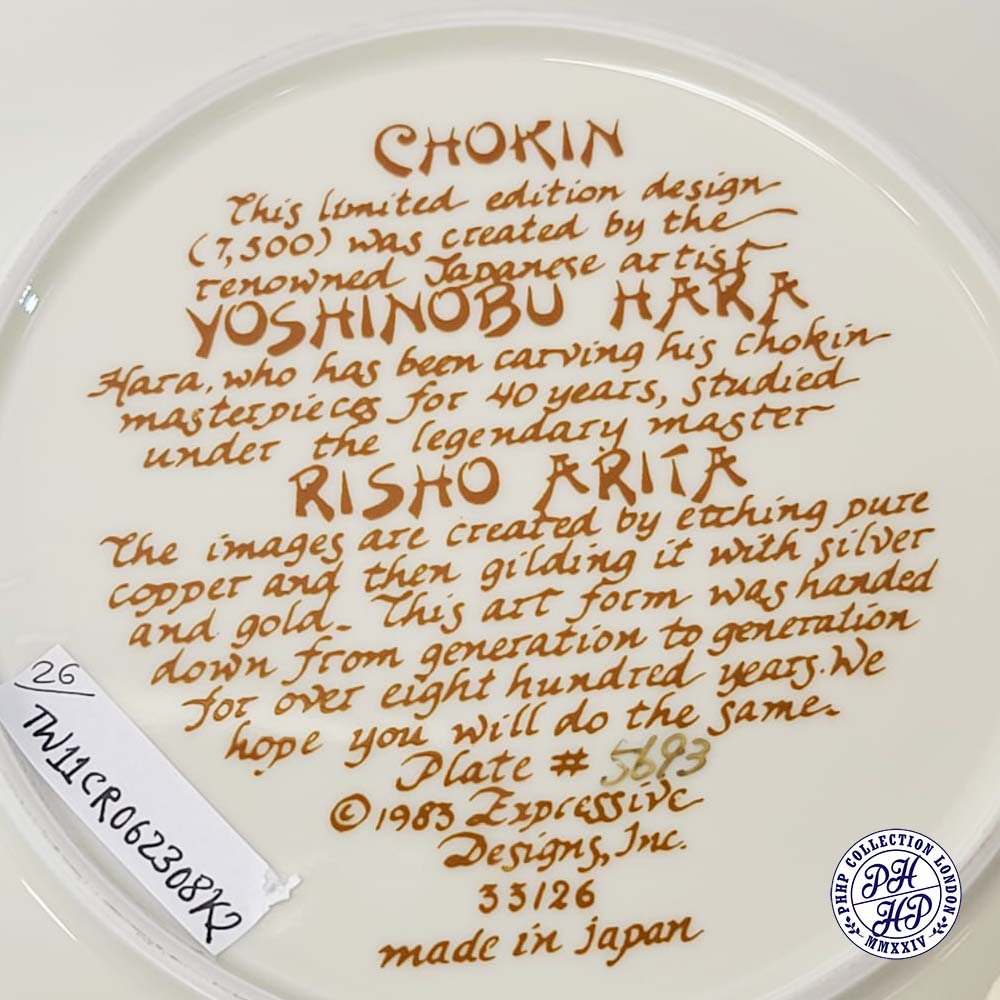 CHOKIN
This limited edition design
(7,500) was created by the
renowned Japanese artist
YOSHINOBU HARA
Hara, who has been carving his chokin
masterpieces for 40 years, studied
under the legendary master
RISHO ARITA
The images are created by etching pure
copper and then gilding it with silver
and gold. This art form was handed
down from generation to generation
for over eight hundred years. We
hope you will do the same.
Plate # 5693
©1983 Expressive
Designs, Inc.
33126
made in japan
26
TW11CR062308K2
PHHP COLLECTION LONDON
PH
HP
MMXXIV